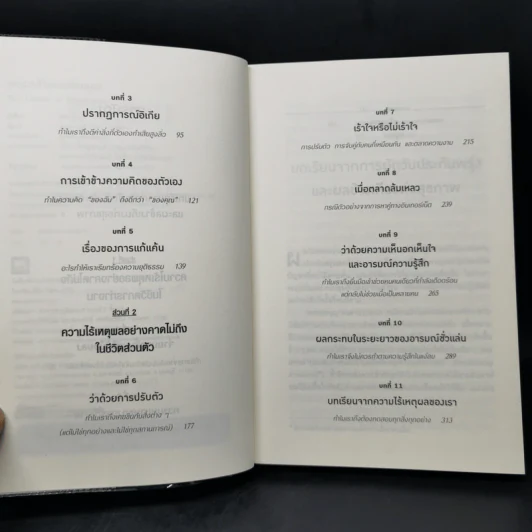 บทที่ 3
ปรากฏการณ์อิเกีย
ทำไมเราถึงตีค่าสิ่งที่ตัวเองทำเสียสูงลิ่ว 95
บทที่ 4
การเข้าข้างความคิดของตัวเอง
ทำไมความคิด "ของฉัน" ถึงดีกว่า "ของคุณ" 121
บทที่ 5
เรื่องของการแก้แค้น
อะไรทำให้เราเรียกร้องความยุติธรรม 139
ส่วนที่ 2
ความไร้เหตุผลอย่างคาดไม่ถึง
ในชีวิตส่วนตัว
บทที่ 6
ว่าด้วยการปรับตัว
ทำไมเราถึงเคยชินกับสิ่งต่าง ๆ
(แต่ไม่ใช่ทุกอย่างและไม่ใช่ทุกสถานการณ์) 177
บทที่ 7
เร้าใจหรือไม่เร้าใจ
การปรับตัว การจับคู่กับคนที่เหมือนกัน และตลาดความงาม 215
บทที่ 8
เมื่อตลาดล้มเหลว
กรณีตัวอย่างจากการหาคู่ทางอินเทอร์เน็ต 239
บทที่ 9
ว่าด้วยความเห็นอกเห็นใจ
และอารมณ์ความรู้สึก
ทำไมเราถึงยื่นมือเข้าช่วยคนคนเดียวที่กำลังเดือดร้อน
แต่กลับไม่ช่วยเมื่อเป็นหลายคน 263
บทที่ 10
ผลกระทบในระยะยาวของอารมณ์ชั่วแล่น
ทำไมเราจึงไม่ควรทำตามความรู้สึกในแง่ลบ 289
บทที่ 11
บทเรียนจากความไร้เหตุผลของเรา
ทำไมเราถึงต้องทดสอบทุกสิ่งทุกอย่าง 313